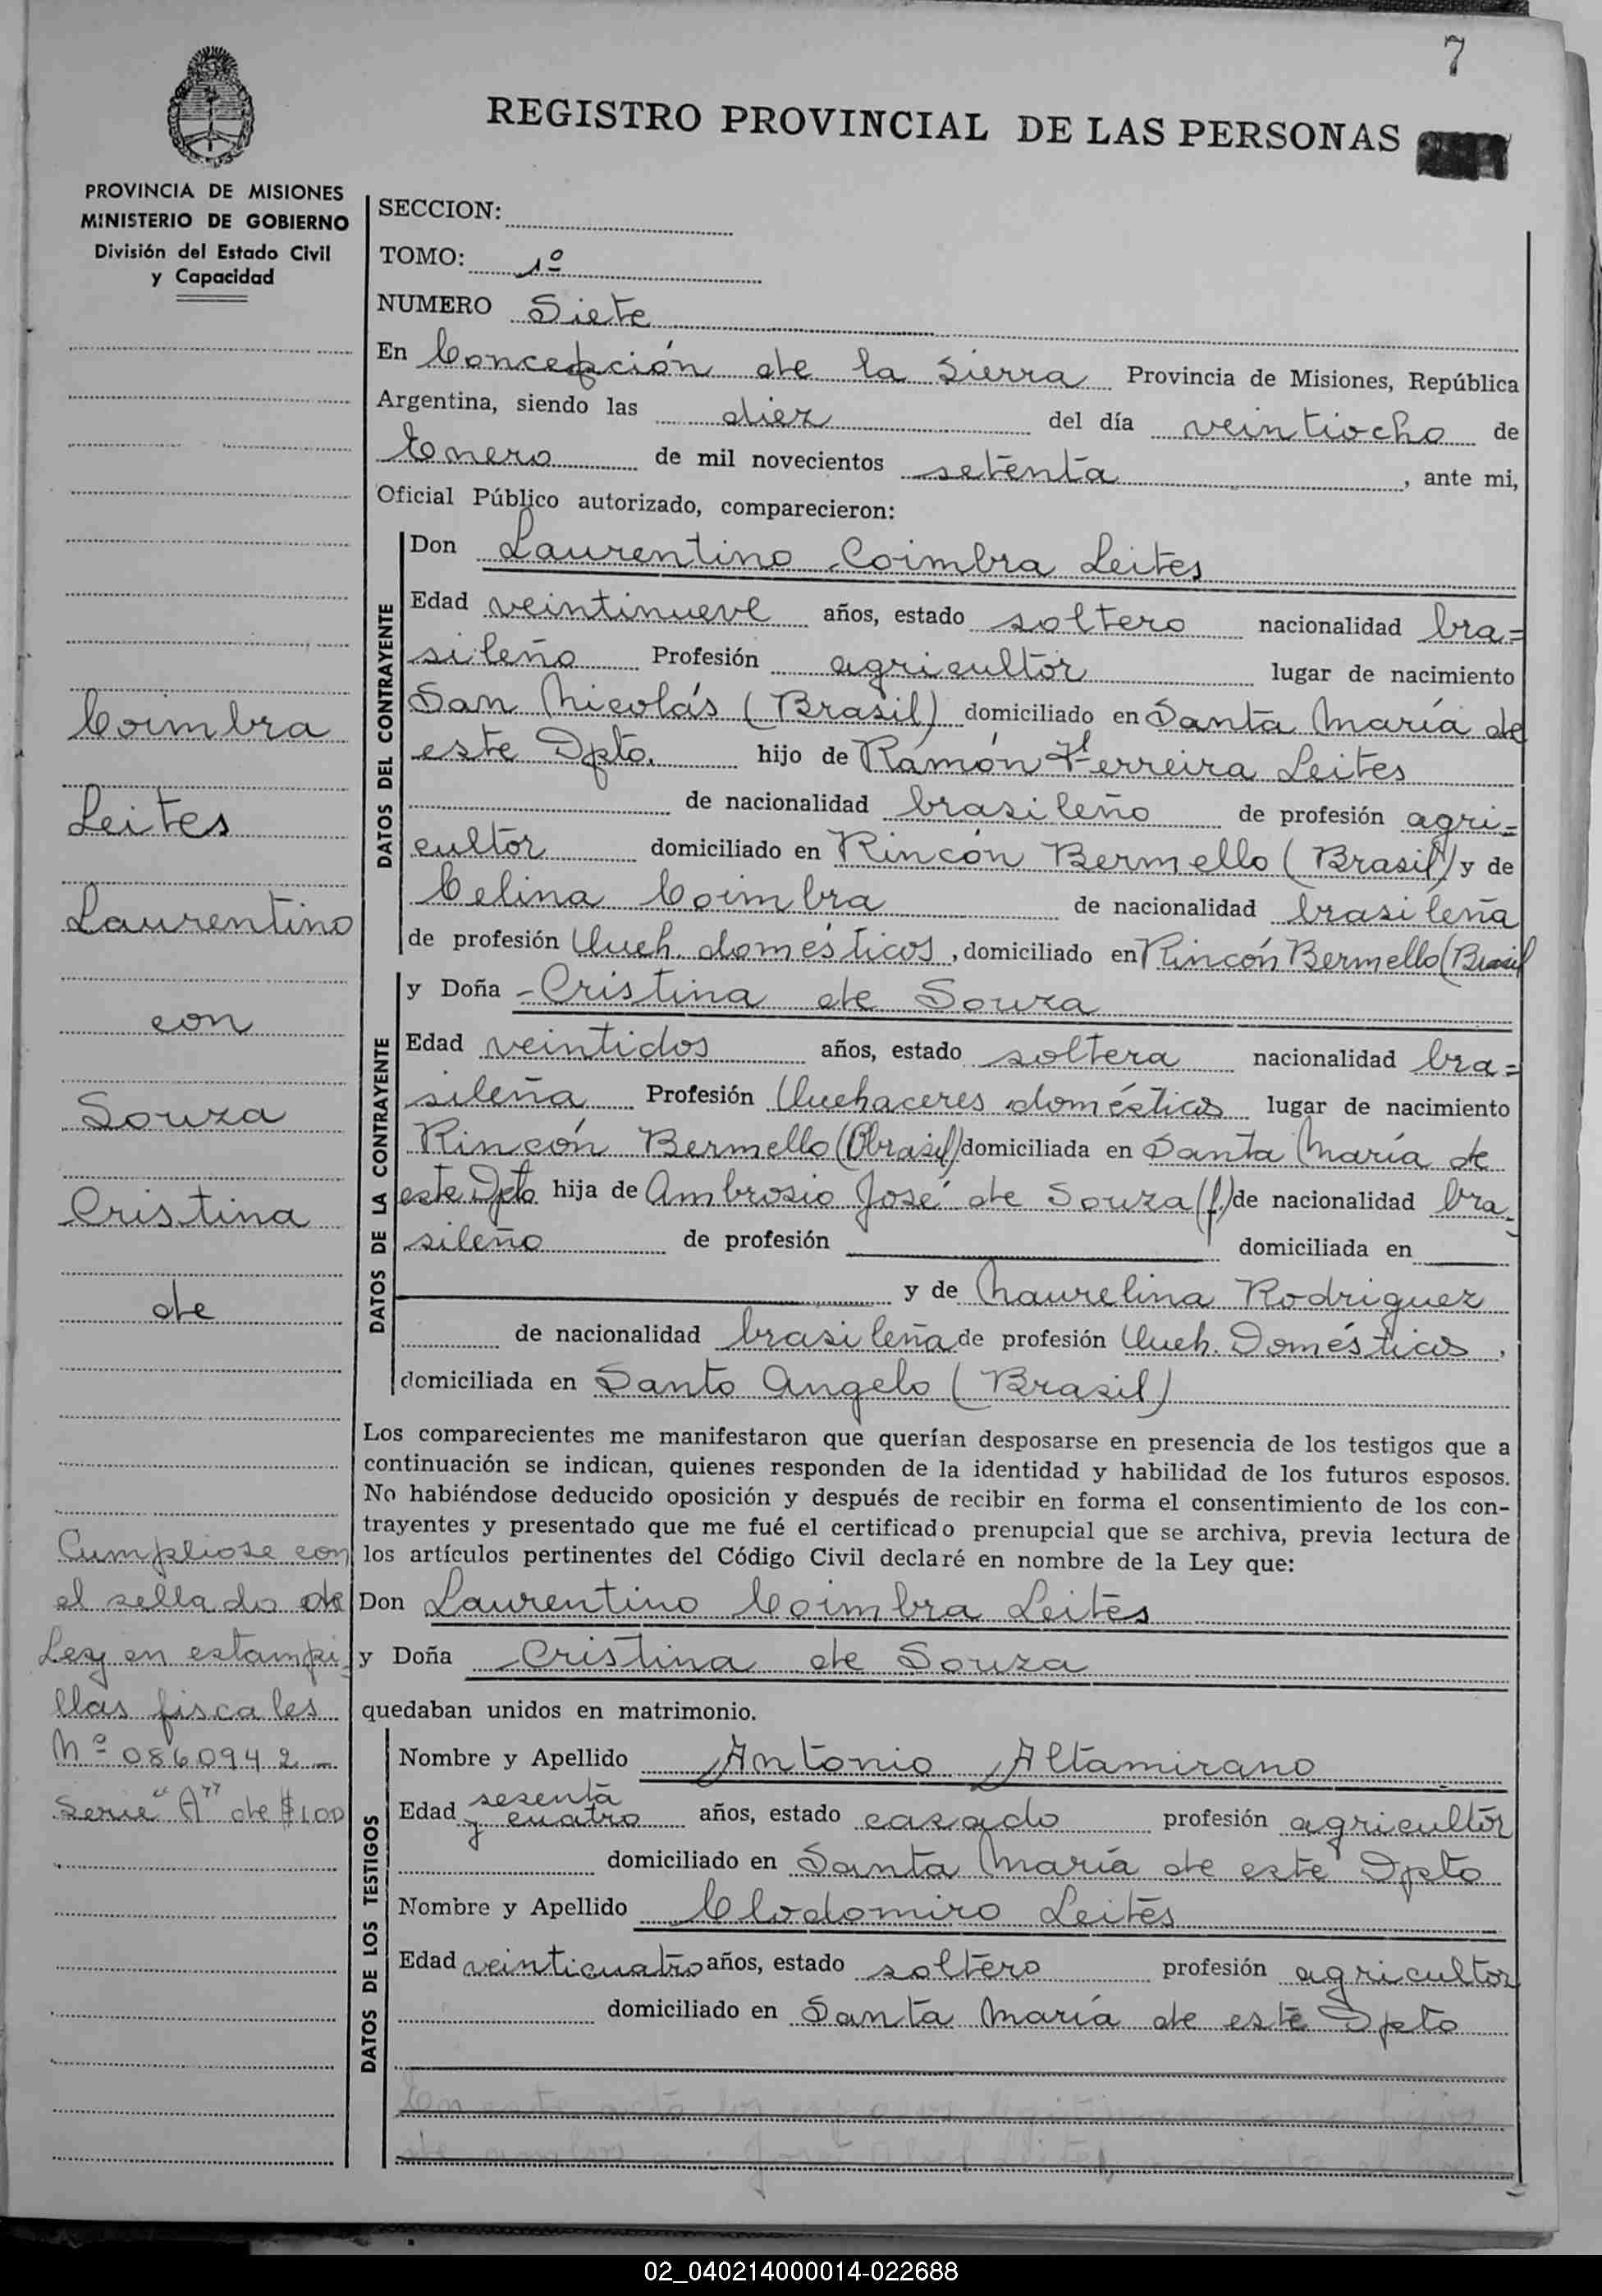 7
REGISTRO PROVINCIAL DE LAS PERSONAS
PROVINCIA DE MISIONES
MINISTERIO DE GOBIERNO
División del Estado Civil
y Capacidad
SECCION:
TOMO: 1º
NUMERO Siete
En Concepción de la Sierra Provincia de Misiones, República
Argentina, siendo las diez del día veintiocho de
Enero de mil novecientos setenta, ante mi,
Oficial Público autorizado, comparecieron:
DATOS DEL CONTRAYENTE
Don Laurentino Coimbra Leites
Edad veintinueve años, estado soltero nacionalidad bra=
sileño Profesión agricultor lugar de nacimiento
San Nicolás (Brasil) domiciliado en Santa María de
este Dpto. hijo de Ramón Ferreira Leites
de nacionalidad brasileño de profesión agri=
cultor domiciliado en Rincón Bermello (Brasil) y de
Celina Coimbra de nacionalidad brasileña
de profesión Queh. domésticos, domiciliado en Rincón Bermello (Brasil
DATOS DE LA CONTRAYENTE
y Doña Cristina de Souza
Edad veintidos años, estado soltera nacionalidad bra=
sileña Profesión Quehaceres domésticos lugar de nacimiento
Rincón Bermello (Brasil) domiciliada en Santa María de
este Dpto hija de Ambrosio José de Souza (f.) de nacionalidad bra=
sileño de profesión domiciliada en
y de Maurelina Rodriguez
de nacionalidad brasileña de profesión Queh. Domésticos,
domiciliada en Santo Angelo (Brasil)
Los comparecientes me manifestaron que querían desposarse en presencia de los testigos que a
continuación se indican, quienes responden de la identidad y habilidad de los futuros esposos.
No habiéndose deducido oposición y después de recibir en forma el consentimiento de los con-
trayentes y presentado que me fué el certificado prenupcial que se archiva, previa lectura de
los artículos pertinentes del Código Civil declaré en nombre de la Ley que:
Don Laurentino Coimbra Leites
y Doña Cristina de Souza
quedaban unidos en matrimonio.
DATOS DE LOS TESTIGOS
Nombre y Apellido Antonio Altamirano
Edad sesenta y cuatro años, estado casado profesión agricultor
domiciliado en Santa María de este Dpto
Nombre y Apellido Clodomiro Leites
Edad veinticuatro años, estado soltero profesión agricultor
domiciliado en Santa María de este Dpto
Coimbra
Leites
Laurentino
con
Souza
Cristina
de
Cumpliose con
el sellado de
Ley en estampi=
llas fiscales
Nº 0860942_
Serie "A" de $100
02_040214000014-022688